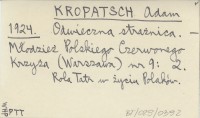 KROPATSCH Adam
1924. Odwieczna strażnica. –
Młodzież Polskiego Czerwonego
Krzyża (Warszawa) nr 9: 2.
Rola Tatr w życiu Polaków.
PTT